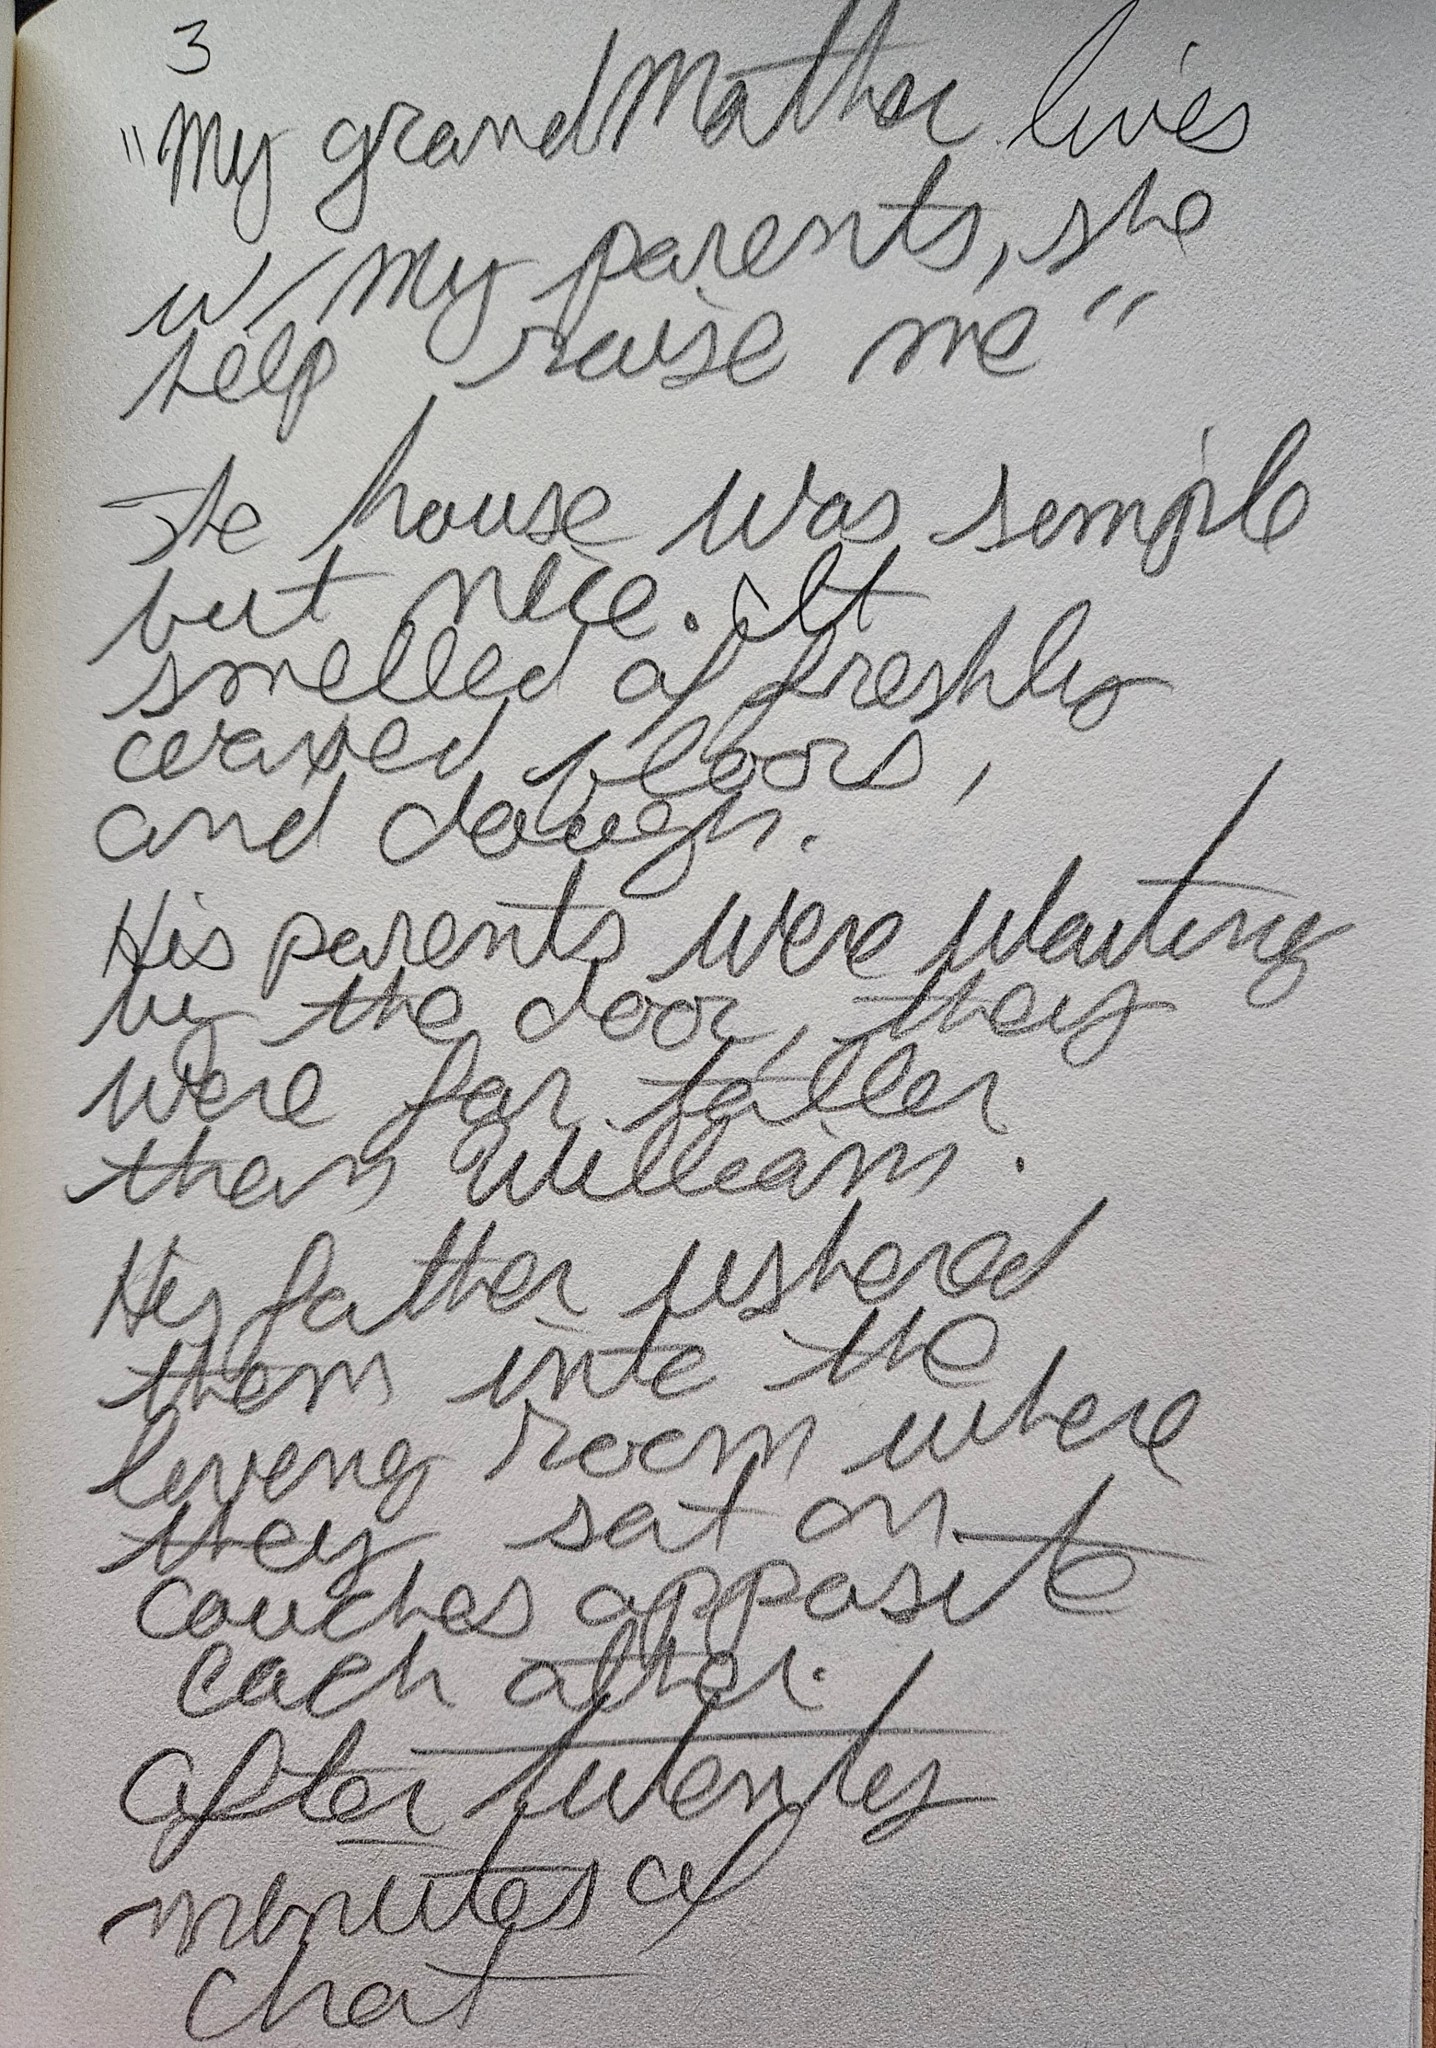 3
"My grandMother lives
w/ my parents, she
help raise me"
The house was simple
but nice. It
smelled of freshly
waxed floors,
and dough.
His parents were waiting
by the door, they
were far taller
than William.
His father ushered
them into the
living room where
they sat on
couches opposite
each other.
After twenty
minutes of
chat